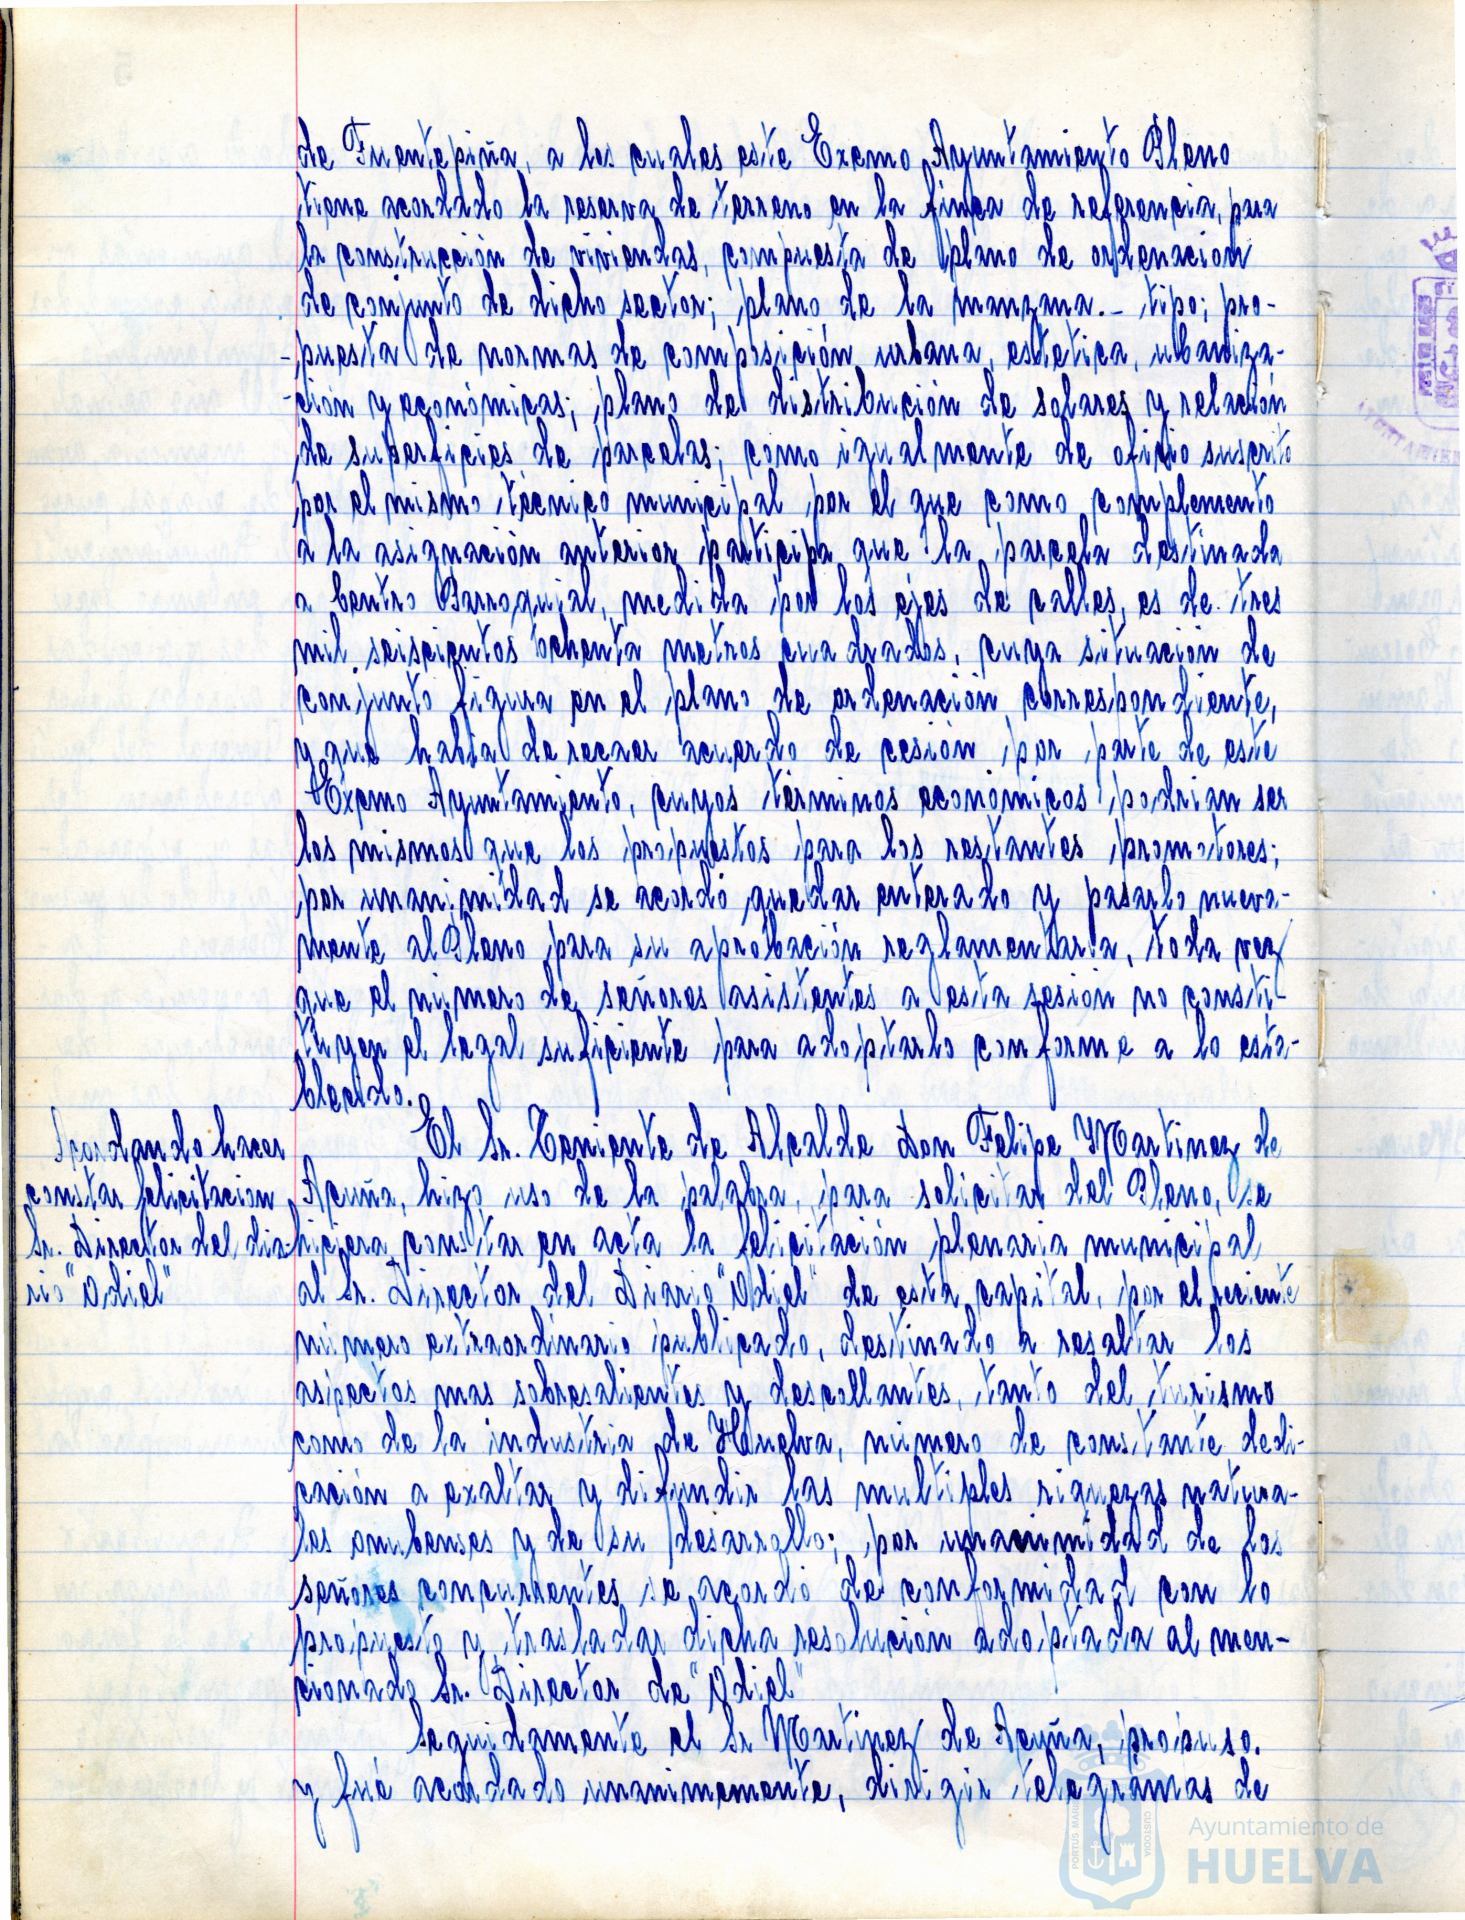 de Fuentepiña, a los cuales este Excmo Ayuntamiento Pleno
tiene acordado la reserva de terreno en la finca de referencia, para
la construcción de viviendas, compuesta de plano de ordenación
de conjunto de dicho sector; plano de la manzana.- tipo; pro-
-puesta de normas de composición urbana, estetica, ubaniza-
-ción y económicas; plano de distribución de solares y relación
de superficies de parcelas; como igualmente de oficio suscrito
por el mismo técnico municipal, por el que como complemento
a la asignación anterior participa que la parcela destinada
a Centro Parroquial, medida por los ejes de calles, es de tres
mil seiscientos ochenta metros cuadrados, cuya situación de
conjunto figura en el plano de ordenación correspondiente,
y que habia de recaer acuerdo de cesión por parte de este
Excmo Ayuntamiento, cuyos términos económicos podrian ser
los mismos que los propuestos para los restantes promotores;
por unanimidad se acordó quedar enterado y pasarlo nueva-
mente al Pleno para su aprobación reglamentaria, toda vez
que el número de señores asistentes a esta sesión no consti-
tuyen el legal suficiente para adoptarlo conforme a lo esta-
blecido.
Acordando hacer
constar felicitacion
Sr. Director del dia-
rio "Odiel"
El Sr. Teniente de Alcalde Don Felipe Martinez de
Acuña, hizo uso de la palabra, para solicitar del Pleno, se
hiciera constar en acta la felicitación plenaria municipal
al Sr. Director del Diario "Odiel" de esta capital, por el reciente
número extraordinario publicado, destinado a resaltar los
aspectos mas sobresalientes y descollantes, tanto del turismo
como de la industria de Huelva, número de constante dedi-
cación a exaltar y difundir las multiples riquezas natura-
les onubenses y de su desarrollo; por unanimidad de los
señores concurrentes se acordó de conformidad con lo
propuesto y trasladar dicha resolución adoptada al men-
cionado Sr. Director de "Odiel"
Seguidamente el Sr Martinez de Acuña, propuso.
y fué acordado unanimemente, dirigir telegramas de
PORTUS MARIS
CUSTODIA
Ayuntamiento de
HUELVA